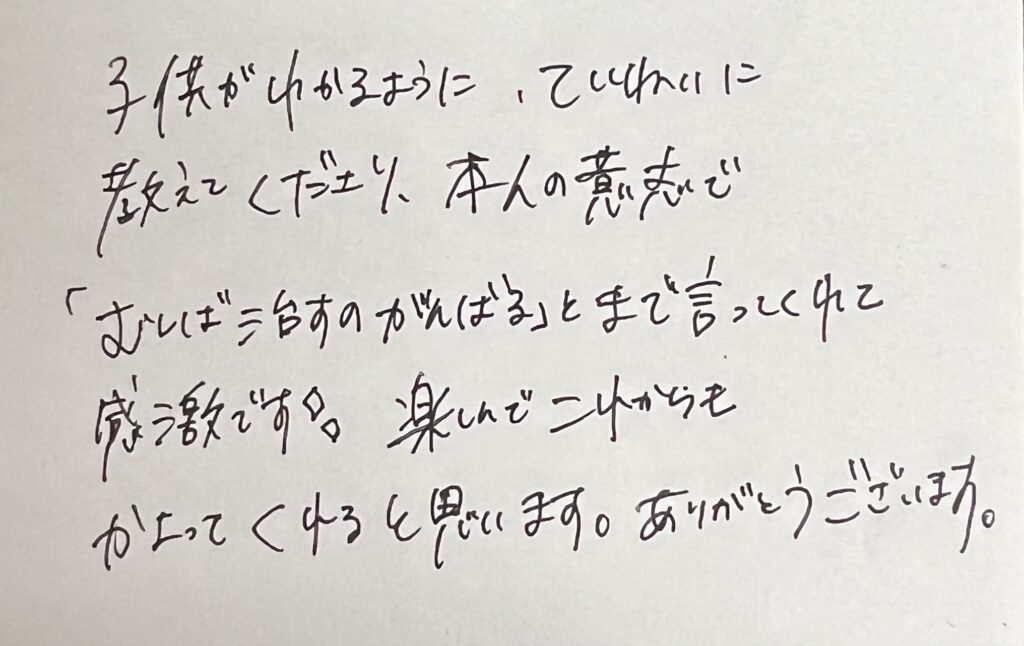 子供がわかるように、ていねいに
教えてくださり、本人の意志で
「むしば治すのがんばる」とまで言ってくれて
感激です。楽しんでこれからも
かよってくれると思います。ありがとうございます。